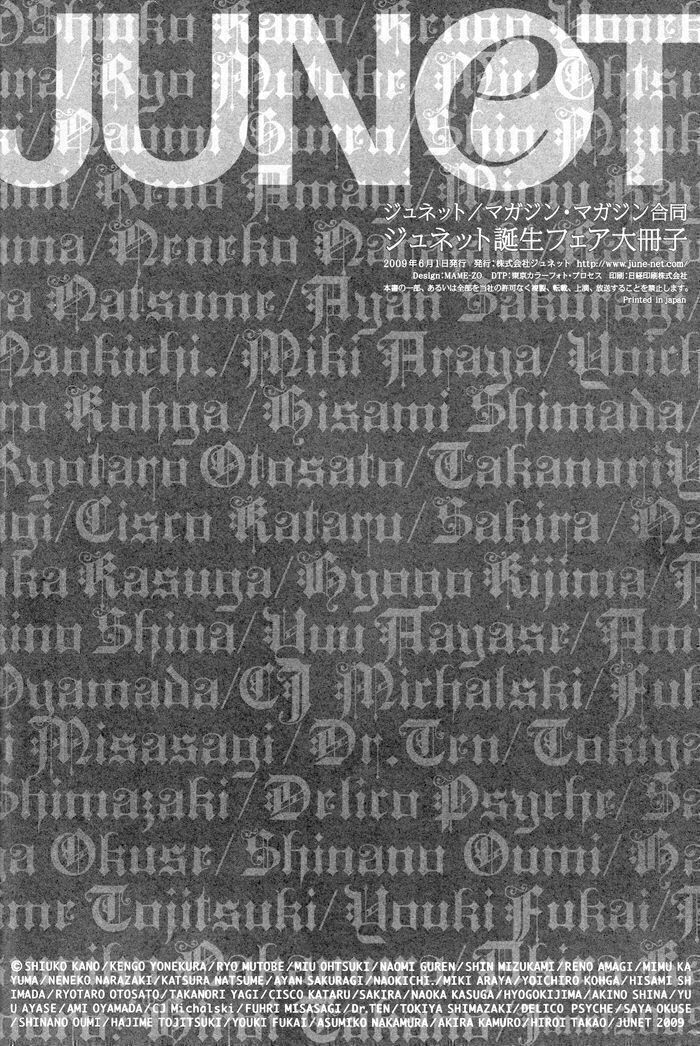 JUNeT
Shiuko Kano/Kengo Yonek
ra/Ryo Mutobe/Miu Ohtsuk
i/Naomi Guren/Shin Mizuk
ami/Reno Amagi/Mimu Ka
yuma/Neneko Narazaki/K
a Natsume/Ayan Sakurag
Naokichi./Miki Araya/Yoich
ro Kohga/Hisami Shimada/
Ryotaro Otosato/Takanori Y
agi/Cisco Kataru/Sakira/Na
oka Kasuga/Hyogo Kijima/
ino Shina/Yuu Aayase/Ami
Oyamada/CJ Michalski/Fuh
i Misasagi/Dr.Ten/Tokiya
Shimazaki/Delico Psyche/Sa
ya Okuse/Shinano Oumi/Ha
ime Tojitsuki/Youki Fukai/
ジュネット/マガジン・マガジン合同
ジュネット誕生フェア大冊子
2009年6月1日発行 発行:株式会社ジュネット http://www.june-net.com/
Design:MAME-ZO. DTP:東京カラーフォト・プロセス 印刷:日経印刷株式会社
本書の一部、あるいは全部を当社の許可なく複製、転載、上演、放送することを禁止します。
Printed in japan
©SHIUKO KANO/KENGO YONEKURA/RYO MUTOBE/MIU OHTSUKI/NAOMI GUREN/SHIN MIZUKAMI/RENO AMAGI/MIMU KA
YUMA/NENEKO NARAZAKI/KATSURA NATSUME/AYAN SAKURAGI/NAOKICHI./MIKI ARAYA/YOICHIRO KOHGA/HISAMI SH
IMADA/RYOTARO OTOSATO/TAKANORI YAGI/CISCO KATARU/SAKIRA/NAOKA KASUGA/HYOGOKIJIMA/AKINO SHINA/YU
U AYASE/AMI OYAMADA/CJ Michalski/FUHRI MISASAGI/Dr.TEN/TOKIYA SHIMAZAKI/DELICO PSYCHE/SAYA OKUSE
/SHINANO OUMI/HAJIME TOJITSUKI/YOUKI FUKAI/ASUMIKO NAKAMURA/AKIRA KAMURO/HIROI TAKAO/JUNET 2009